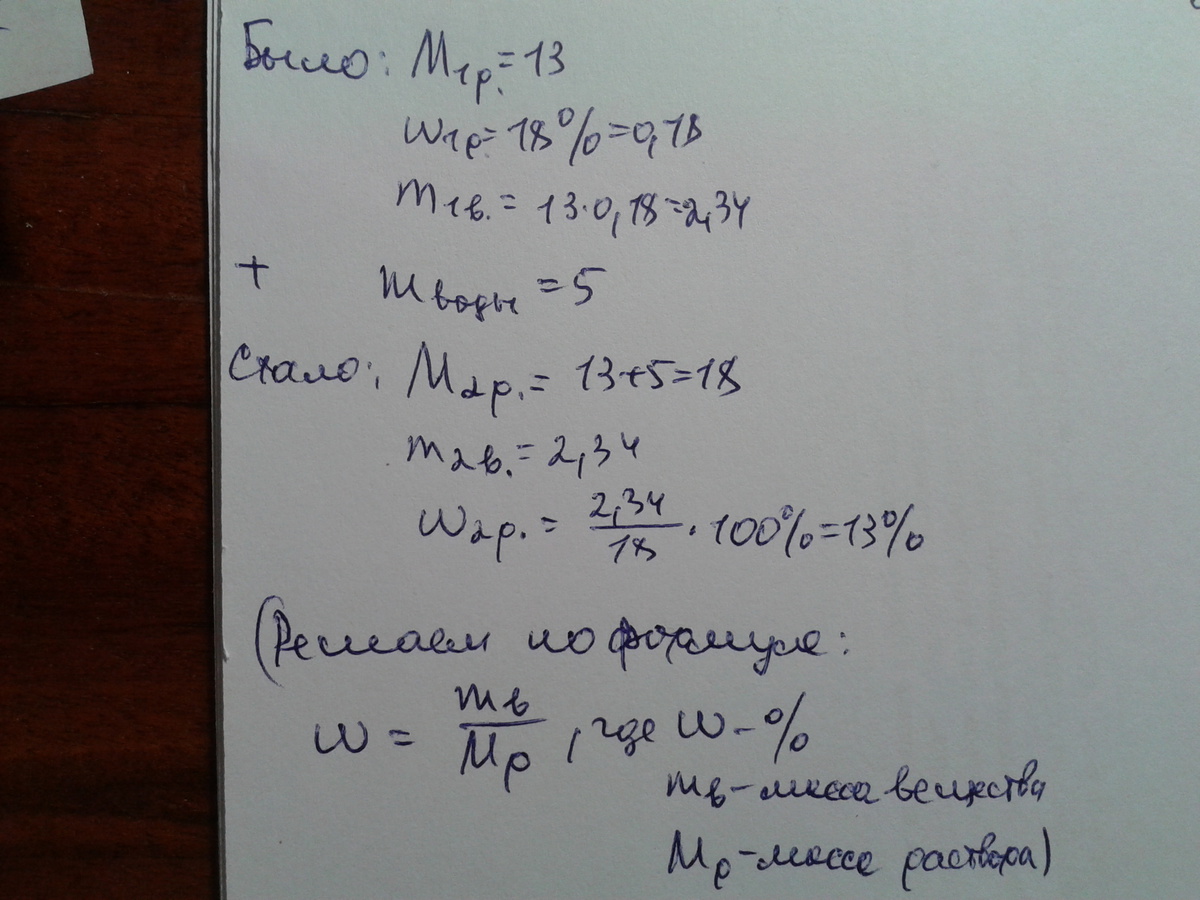 Было: M1р.=13
w1р.=18%=0,18
m1в.=13·0,18=2,34
+ mводы=5
Стало: M2р.=13+5=18
m2в.=2,34
w2р.=2,34/18·100%=13%
(Решаем по формуле:
w=mв/Mр, где w-%
mв-масса вещества
Mр-масса раствора)